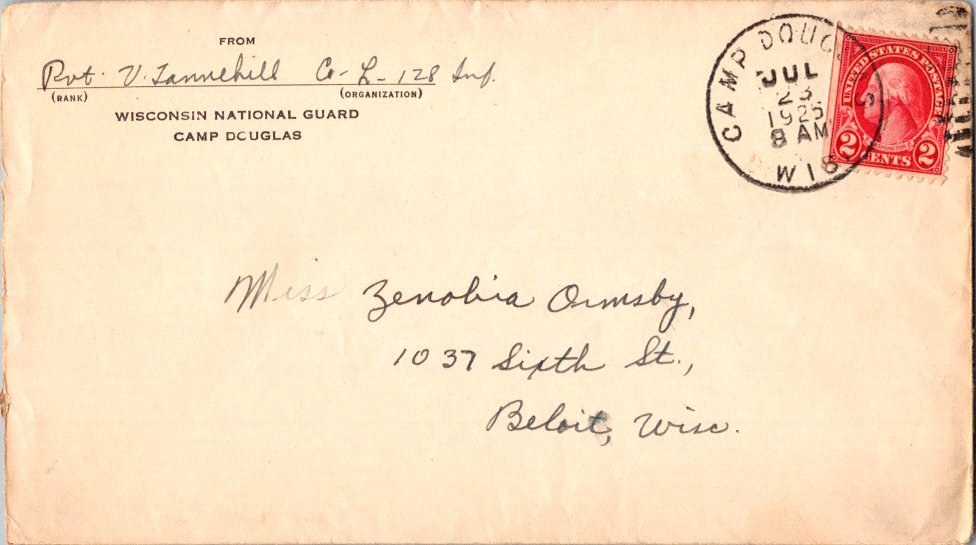 FROM
Pvt. V. Tannehill Co-L-128 Inf.
(RANK) (ORGANIZATION)
WISCONSIN NATIONAL GUARD
CAMP DOUGLAS
CAMP DOUGLAS
JUL
23
1925
8 AM
WIS.
UNITED STATES POSTAGE
2 CENTS 2
Miss Zenobia Ormsby,
1037 Sixth St.,
Beloit, Wisc.